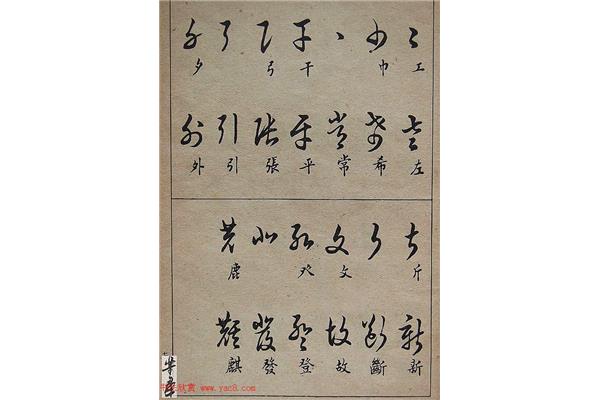 工 左
巾 希
常
干 平
弓 張
引
夕 外
斤 新
斷
文 故
癶 登
發
鹿 麒
书法欣赏 www.yac8.com